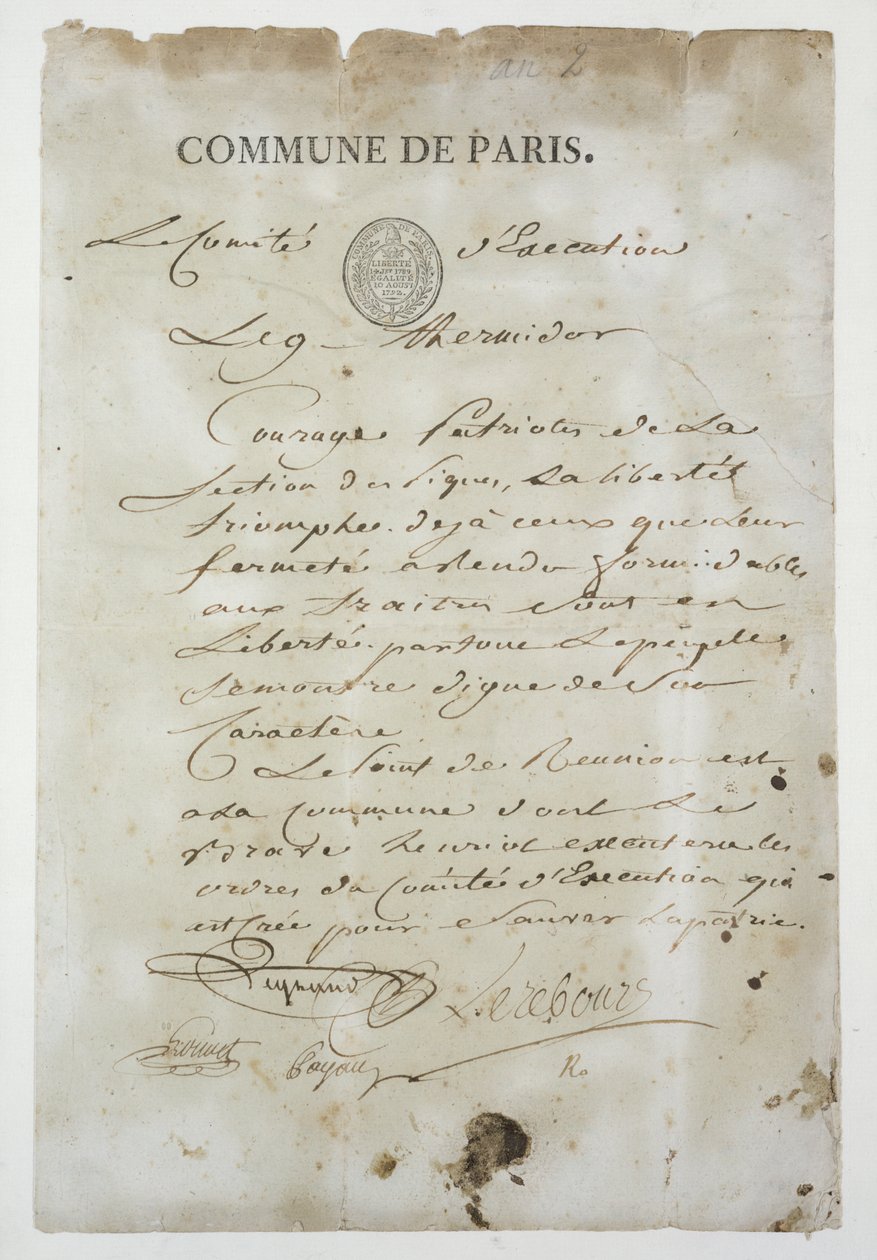 an 2
COMMUNE DE PARIS.
Le Comité d'Execution
COMMUNE DE PARIS.
LIBERTÉ
14 Jet 1789.
EGALITÉ
10 AOUST
1792.
Le 9 - thermidor
Courage Patriotes de La
Section des Piques, La liberté
triomphe. dejà ceux que Leur
fermeté a Rendu formidables
aux traitres Sont en
Liberté. partout Le peuple
se montre digne de Son
Caractère
Le Point de Reunion est
a La Commune dont Le
brave henriot executera les
ordres du Comité d'Execution qui
est Créé pour Sauver La patrie.
Legrand Lerebours
Louvet Payan Ro